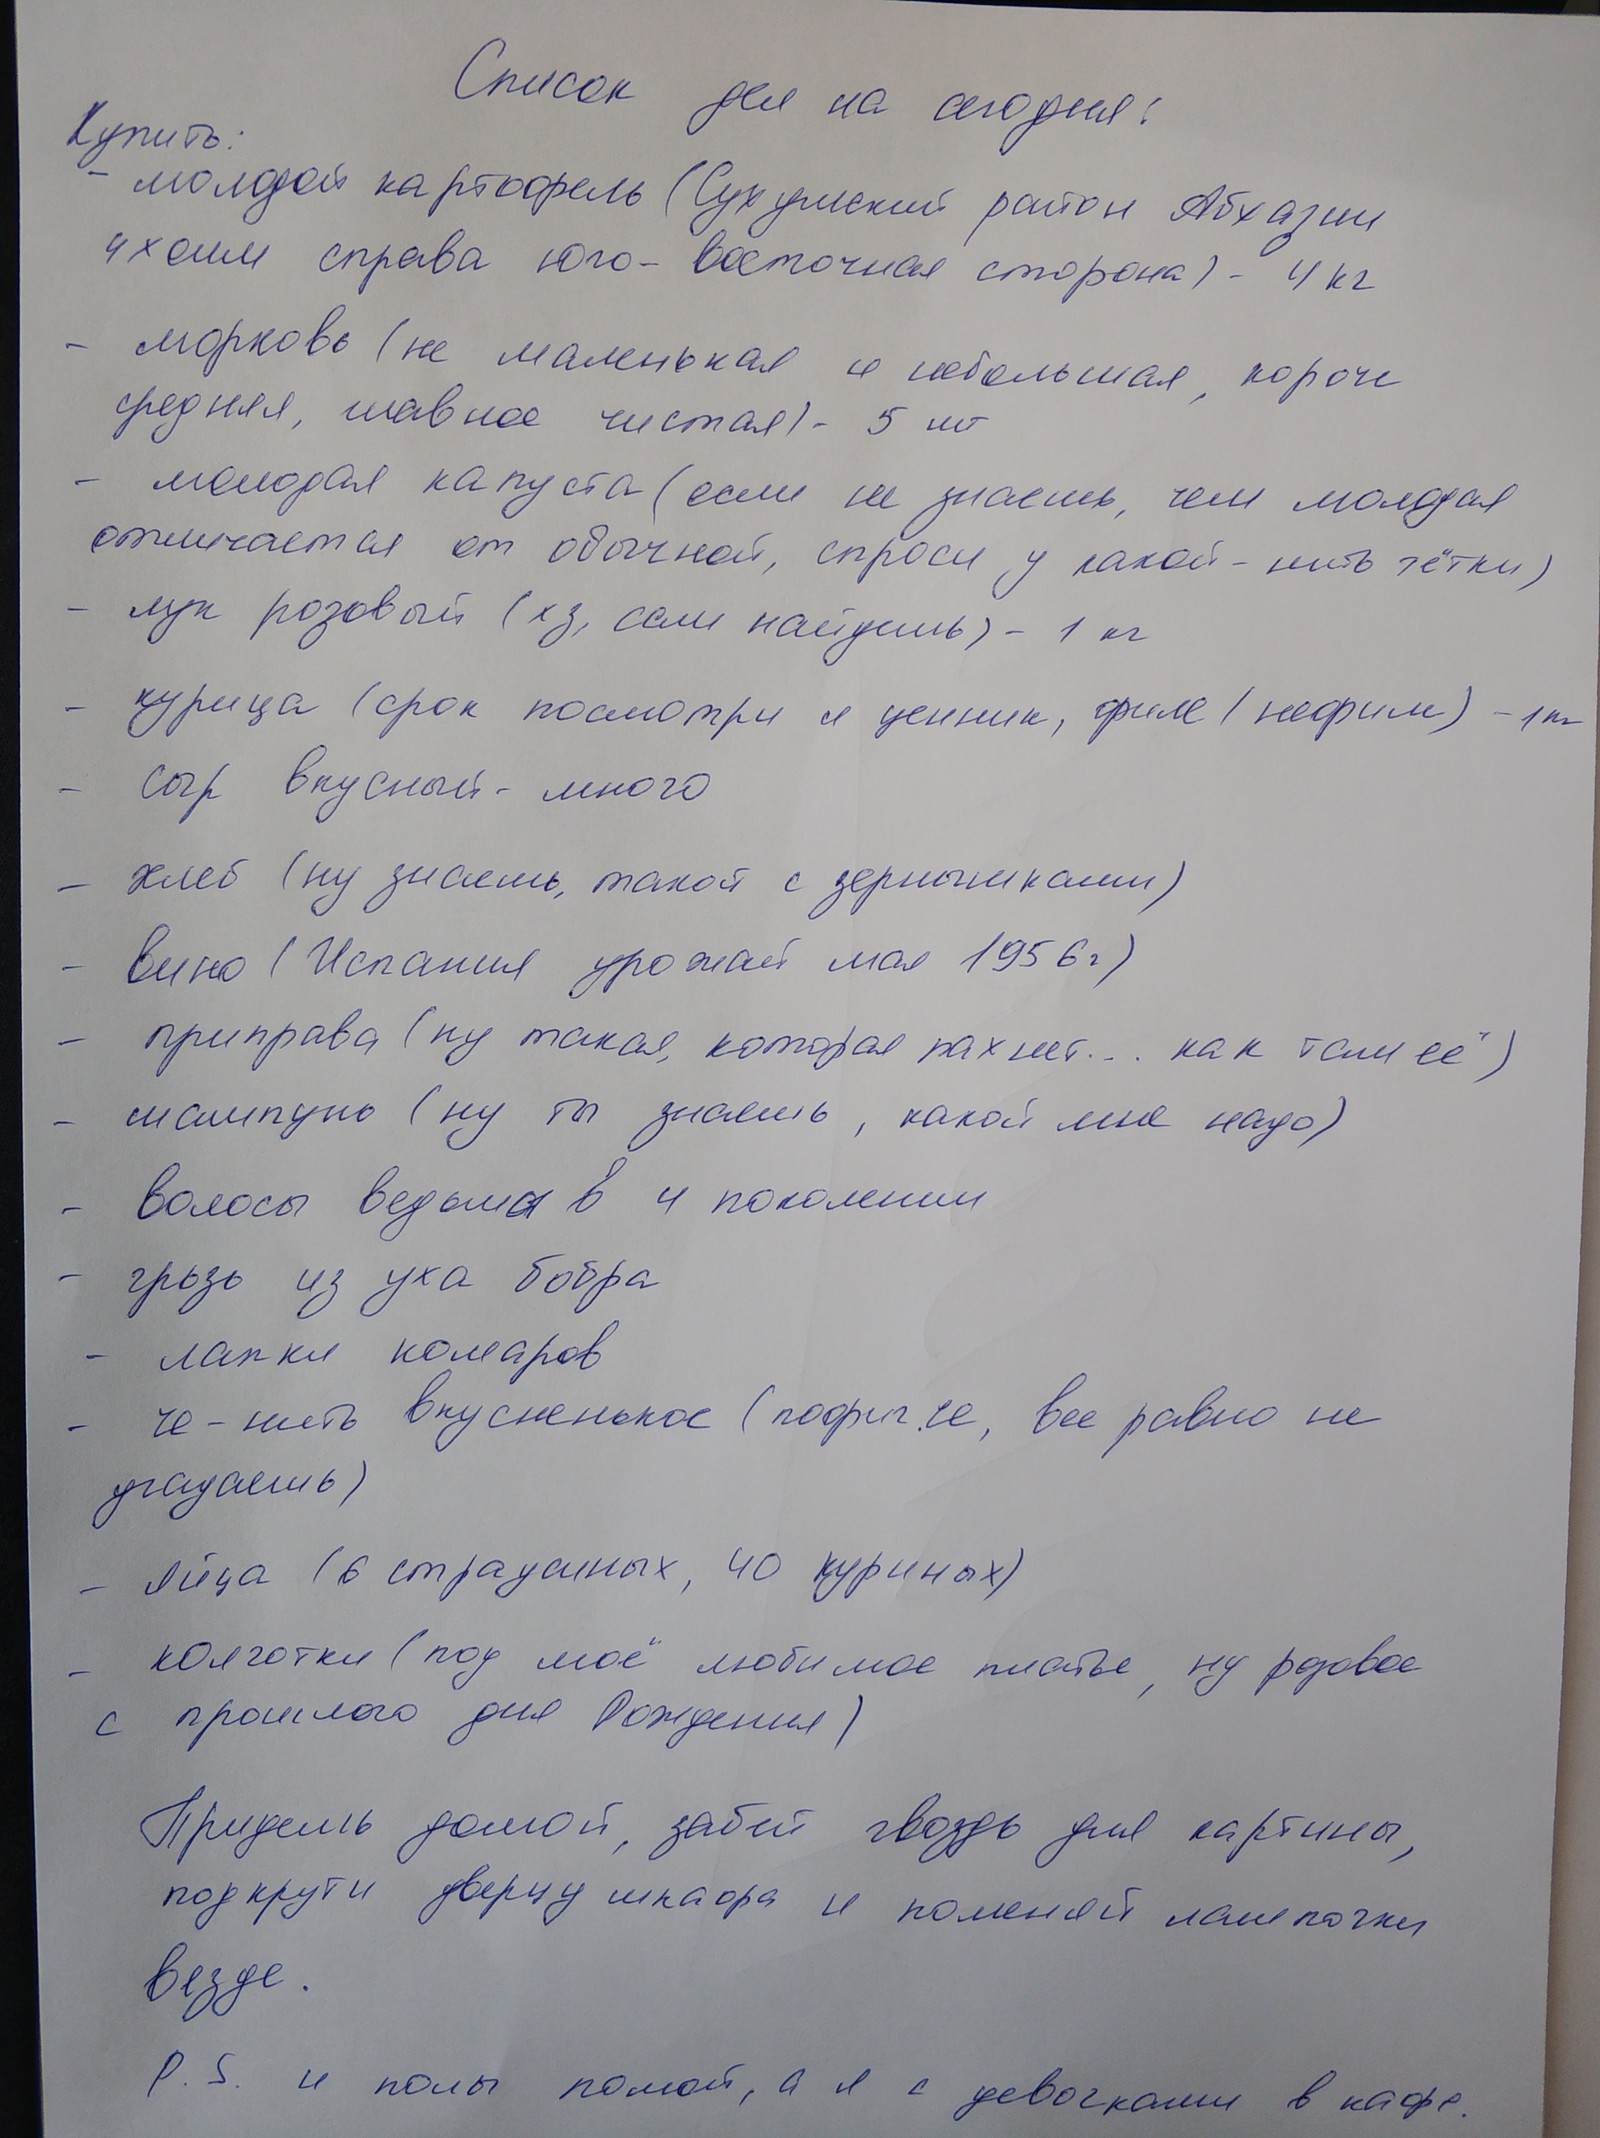 Список дел на сегодня:
Купить:
- молодой картофель (Сухумский район Абхазии
4 холм справа юго-восточная сторона) - 4 кг
- морковь (не маленькая и небольшая, короче
средняя, главное чистая) - 5 шт
- молодая капуста (если не знаешь, чем молодая
отличается от обычной, спроси у какой-нить тётки)
- лук розовый (хз, если найдешь) - 1 кг
- курица (срок посмотри и ценник, филе/нефиле) - 1 кг
- сыр вкусный - много
- хлеб (ну знаешь, такой с зернышками)
- вино (Испания урожай мая 1956г)
- приправа (ну такая, которая пахнет... как там её)
- шампунь (ну ты знаешь, какой мне надо)
- волосы ведьмы в 4 поколении
- грязь из уха бобра
- лапки комаров
- че-нить вкусненькое (пофиг че, все равно не
угадаешь)
- яйца (6 страусиных, 40 куриных)
- колготки (под моё любимое платье, ну розовое
с прошлого дня Рождения)
Придешь домой, забей гвоздь для картины,
подкрути дверцу шкафа и поменяй лампочки
везде.
P.S. и полы помой, а я с девочками в кафе.